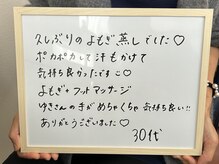 久しぶりのよもぎ蒸しでした♡
ポカポカして汗もかけて
気持ち良かったです☺
よもぎ+フットマッサージ
ゆきさんの手がめちゃくちゃ気持ち良い!!
ありがとうございました♡
30代